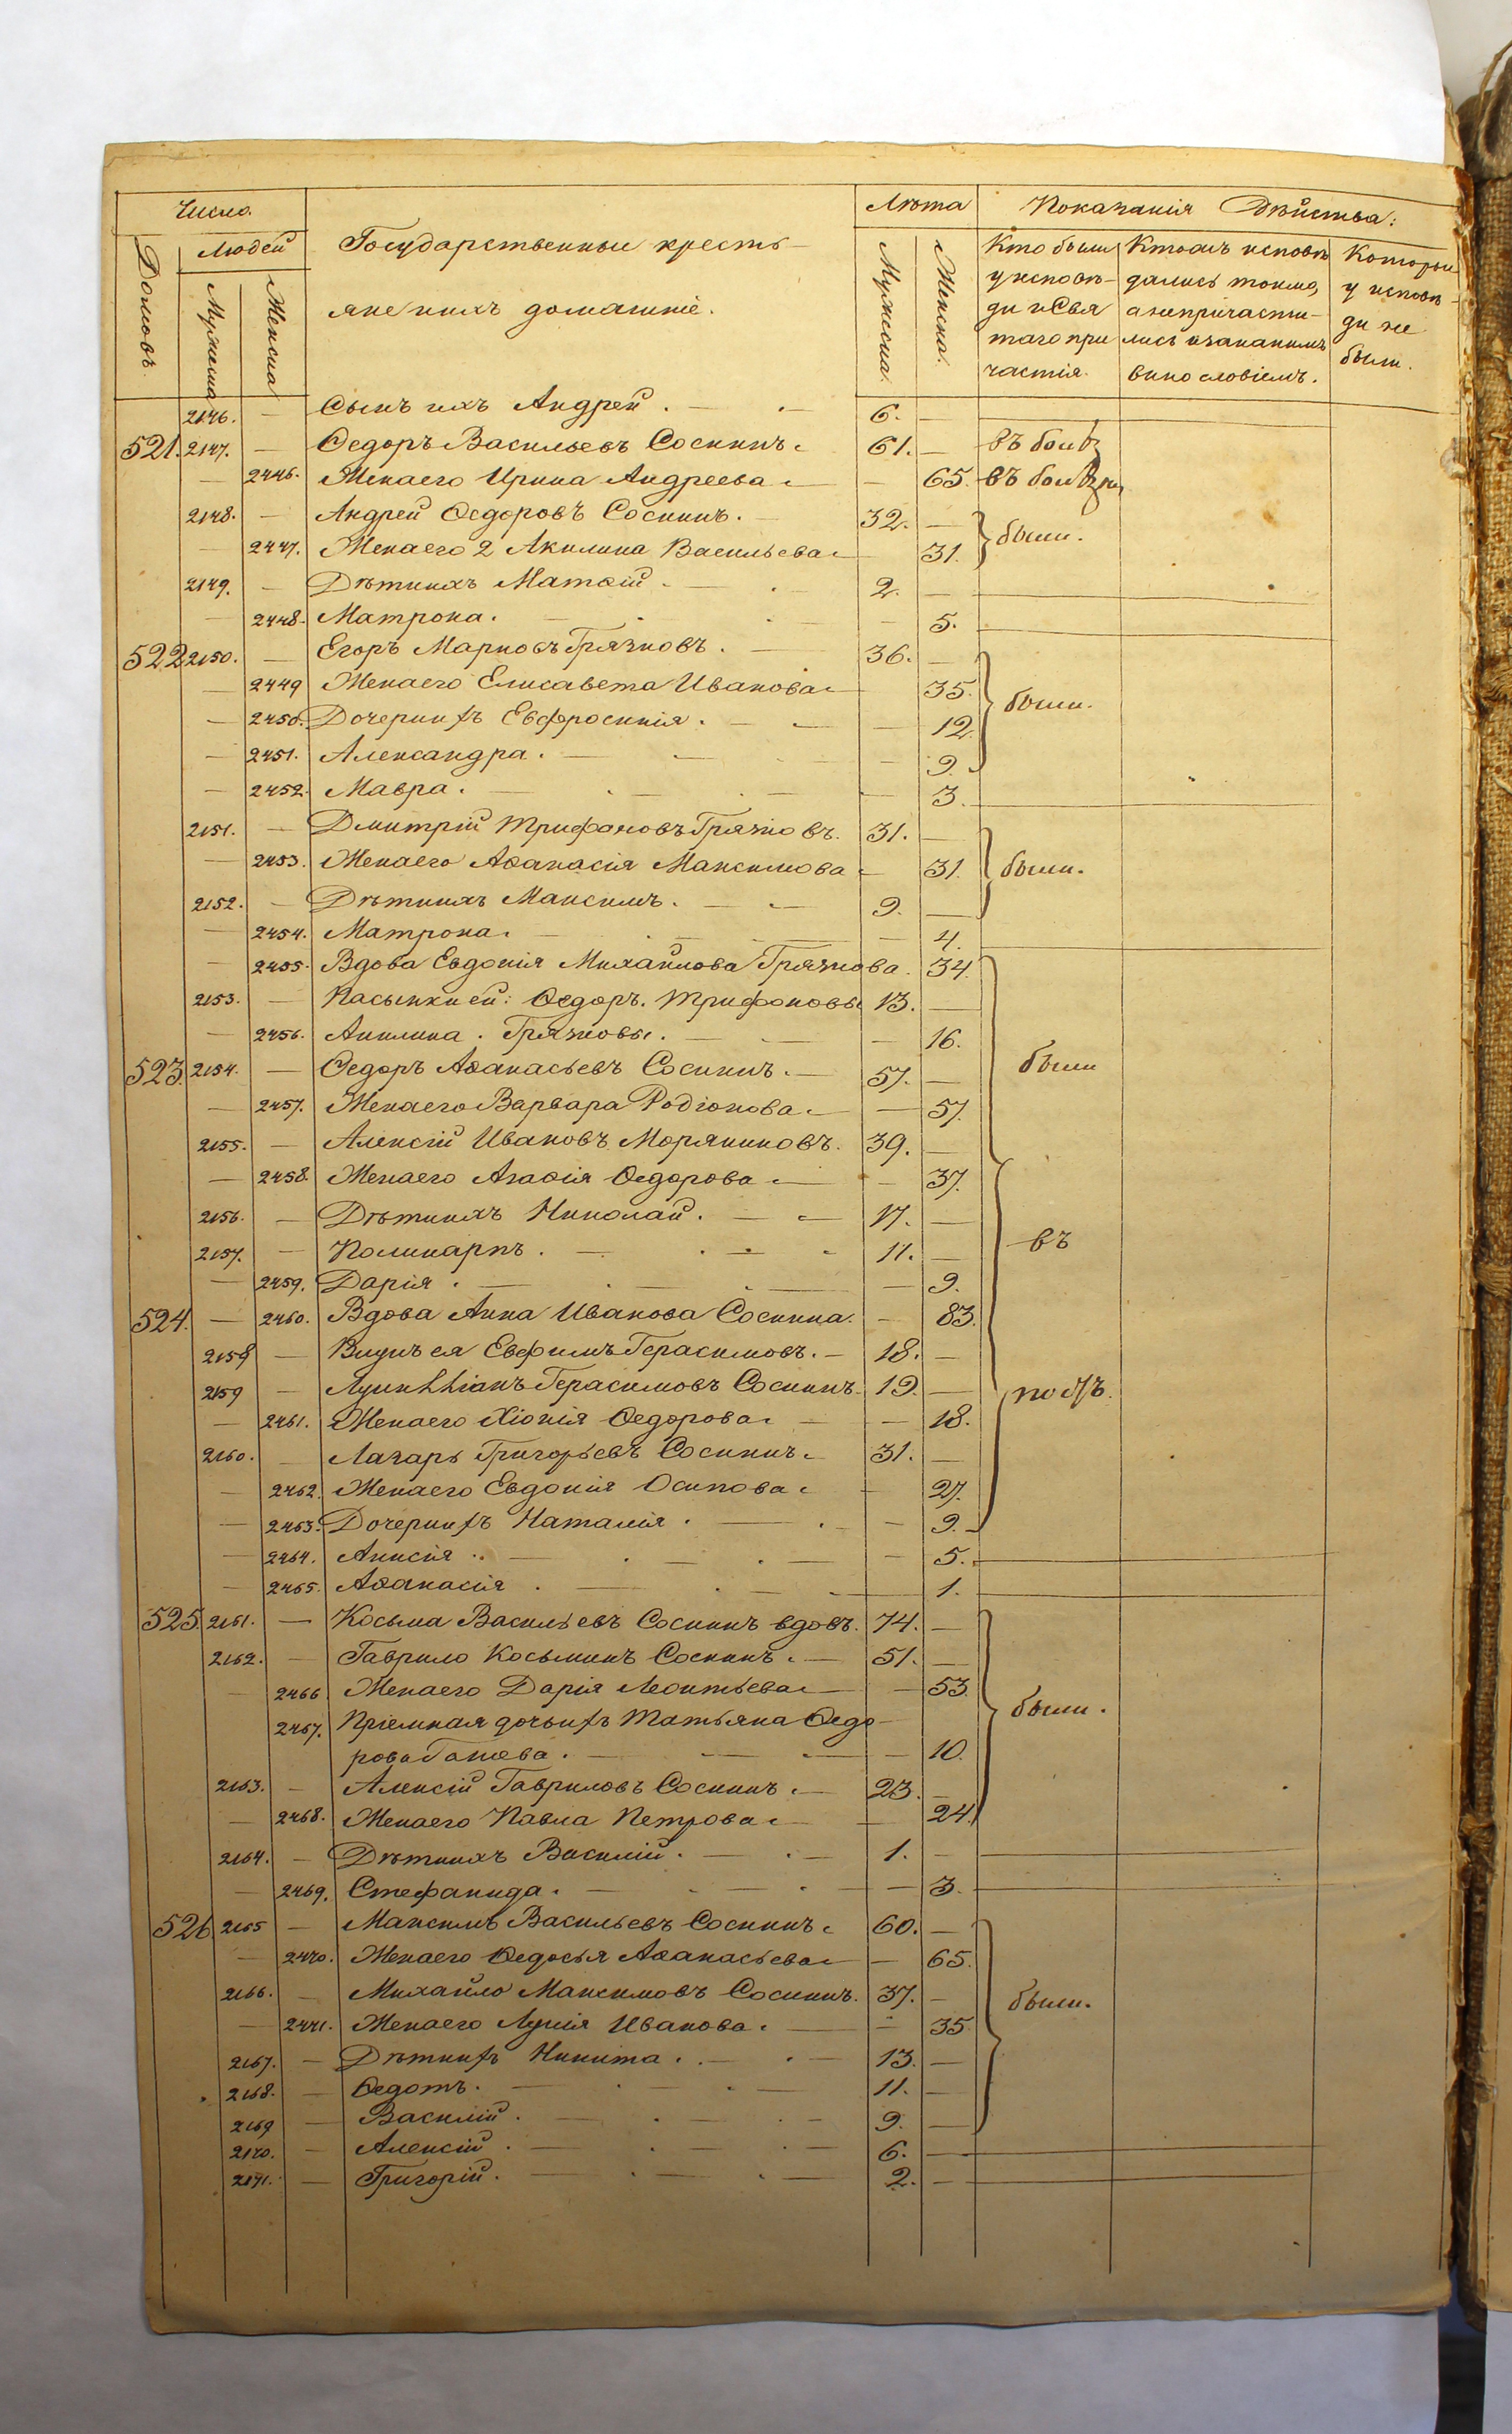 Число.
Лѣта
Показанія Дѣйства:
Домовъ.
Людей
Мужеска
Женска
Государственныи кресть-
яне ихъ домашніе.
Мужеска.
Женска.
Кто были
у исповѣ-
ди и Свя
таго при
частія.
Кто исповѣ
дались токмо,
а непричасти-
лись
винословіемъ.
Которыи
у исповѣ-
ди не
были.
2146. — Сынъ ихъ Андрей. — 6. —
521. 2147. — Ѳедоръ Васильевъ Соснинъ. 61. — въ болѣз
— 2446. Жена его Ирина Андреева. — 65. въ болѣзни
2148. — Андрей Ѳедоровъ Соснинъ. 32. —
были.
— 2447. Жена его 2 Акилина Васильева. 31.
2149. — Дѣти ихъ Матѳій. — 2. —
— 2448. Матрона. — 5.
522 2150. — Егоръ Марковъ Грязновъ. — 36. —
— 2449 Жена его Елисавета Иванова. 35.
были.
— 2450. Дочери ихъ Евфросинія. — 12.
— 2451. Александра. — 9.
— 2452. Мавра. — 3.
2151. — Дмитрій Трифоновъ Грязновъ. 31. —
— 2453. Жена его Аѳанасія Максимова 31.
были.
2152. — Дѣти ихъ Максимъ. — 9. —
— 2454. Матрона. — 4.
— 2455. Вдова Евдокія Михайлова Грязнова. 34.
2153. — Пасынки ей: Ѳедоръ. Трифоновы 13. —
— 2456. Акилина. Грязновы. — 16.
523. 2154. — Ѳедоръ Аѳанасьевъ Соснинъ. — 57. —
были
— 2457. Жена его Варвара Родіонова. — 57.
2155. — Алексій Ивановъ Моряниновъ. 39. —
— 2458. Жена его Агаѳія Ѳедорова. — 37.
2156. — Дѣти ихъ Николай. — 17. —
въ
2157. — Поликарпъ. — 11. —
— 2459. Дарія. — 9.
524. — 2460. Вдова Анна Иванова Соснина. — 83.
2158 — Внукъ ея Евфимъ Герасимовъ. — 18. —
2159 — Герасимовъ Соснинъ. 19. —
— 2461. Жена его Хіонія Ѳедорова. — 18.
2160. — Лазарь Григорьевъ Соснинъ. 31. —
— 2462. Жена его Евдокія Осипова. — 27.
— 2463. Дочери ихъ Наталія. — 9.
— 2464. Анисія. — 5.
— 2465. Аѳанасія. — 1.
525. 2161. — Косьма Васильевъ Соснинъ вдовъ. 74. —
2162. — Гаврило Косьминъ Соснинъ. — 51. —
— 2466 Жена его Дарія Леонтьева — 53.
были.
2467. Пріемная дочь ихъ Татьяна Ѳедо-
рова — 10.
2163. — Алексій Гавриловъ Соснинъ. — 23. —
— 2468. Жена его Павла Петрова. — 24.
2164. — Дѣти ихъ Василій. — 1. —
— 2469. Стефанида. — 3.
526 2165 — Максимъ Васильевъ Соснинъ. 60. —
— 2470. Жена его Ѳедосья Аѳанасьева — 65.
2166. — Михайло Максимовъ Соснинъ. 37. —
были.
— 2471. Жена его Лукія Иванова. — 35
2167. — Дѣти ихъ Никита. — 13. —
2168. — Ѳедотъ. — 11. —
2169 — Василій. — 9. —
2170. — Алексій. — 6. —
2171. — Григорій. — 2. —